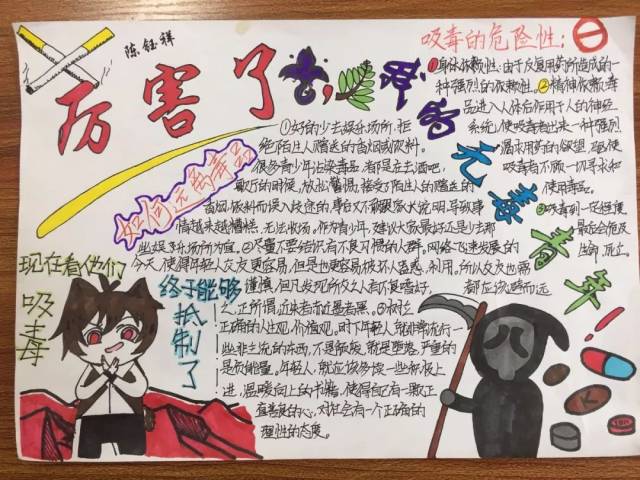 陈钰祥
厉害了,我的无毒青年!
吸毒的危险性:
①身体依赖性:由于反复用药所造成的一
种强烈的依赖性。②精神依赖:毒
品进入人体后作用于人的神经
系统,使吸毒者出现一种强烈
渴求用药的欲望,驱使
吸毒者不顾一切寻求和
使用毒品。
如何远离毒品
①好的少去娱乐场所,拒
绝陌生人赠送的香烟或饮料。
很多青少年沾染毒品,都是在去酒吧,
歌厅的时候,放松警惕,接受了陌生人的赠送的
香烟,饮料而误入歧途的,事后又不敢跟家大说明,导致事
情越来越糟糕,无法收场。作为青少年,建议大家最好还是少去那
些娱乐场所为宜。②尽量不要结识有不良习惯的人群。网络飞速发展的
今天,使得年轻人交友更容易,但是也更容易被坏人蛊惑、利用。所以交友也需
谨慎,但凡发现所交之人有不良嗜好,都应该避而远
之,正所谓,近朱者赤近墨者黑。③树立
正确的人生观,价值观。时下年轻人,就非常流行一
些非主流的东西,不是颓废,就是堕落,严重的
是负能量。年轻人,就应该多读一些积极上
进,温暖向上的书籍,使得自己有一颗正
直善良的心,对社会有一个正确的
理性的态度。
现在看他们
吸毒
终于能够
抵制了